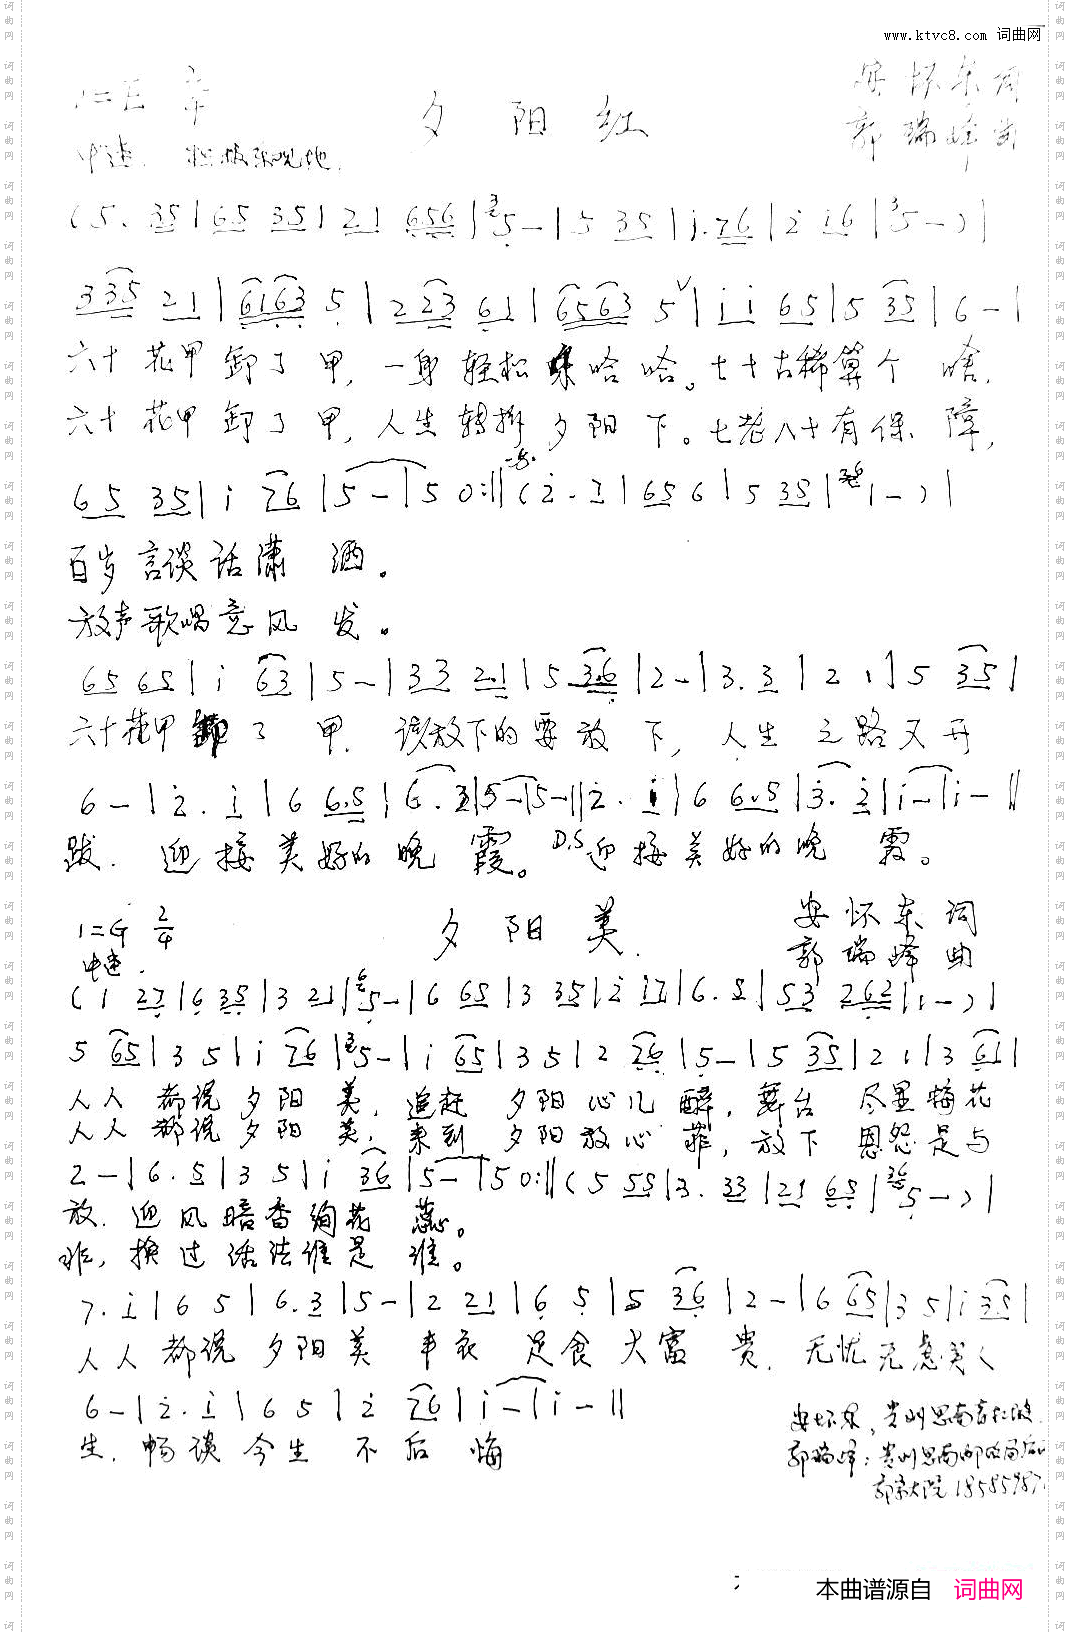 www.ktvc8.com 词曲网
1=E 2/4 夕阳红 安怀东词
中速. 积极乐观地. 郭瑞峰曲
(5. 35|65 35|21 656|5-|5 35|i.76|2 i6|5-)|
335 21|6163 5|223 61|6563 5|ii 65|5 35|6-|
六十花甲卸了甲,一身轻松来哈哈。七十古稀算个啥,
六十花甲卸了甲,人生转折夕阳下。七老八十有保障,
65 35|i 76|5-|5 0:||(2.7|65 6|5 35|1-)|
百岁言谈话潇洒。
放声歌唱意风发。
65 65|i 63|5-|33 2.1|5 3.6|2-|3.3|2 1|5 35|
六十花甲卸了甲.该放下的要放下,人生之路又开
6-|2.i|6 6.5|6.3|5-|5-||2.i|6 6.5|3.2|i-|i-||
跋.迎接美好的晚霞。D.S迎接美好的晚霞。
1=G 2/4 夕阳美. 安怀东词
中速. 郭瑞峰曲
(1 27|6 35|3 21|5-|6 65|3 35|2 i7|6.5|53 262|1-)|
5 65|3 5|i 76|5-|i 65|3 5|2 76|5-|5 35|2 1|3 61|
人人都说夕阳美,追赶夕阳心儿醉,舞台尽是梅花
人人都说夕阳美,来到夕阳放心菲,放下恩怨是与
2-|6.5|3 5|i 36|5-|5 0:||(5 55|3.33|21 65|5-)|
放.迎风暗香绚花蕊。
非,换过活法谁是谁。
7.i|6 5|6.3|5-|2 21|6 5|5 36|2-|6 65|35|i 35|
人人都说夕阳美 丰衣足食大富贵.无忧无虑美人
6-|2.i|6 5|2 76|i-|i-||
生.畅谈今生不后悔
安怀东,贵州思南
郭瑞峰:贵州思南邮政局
郭家大院 18585987
本曲谱源自 词曲网